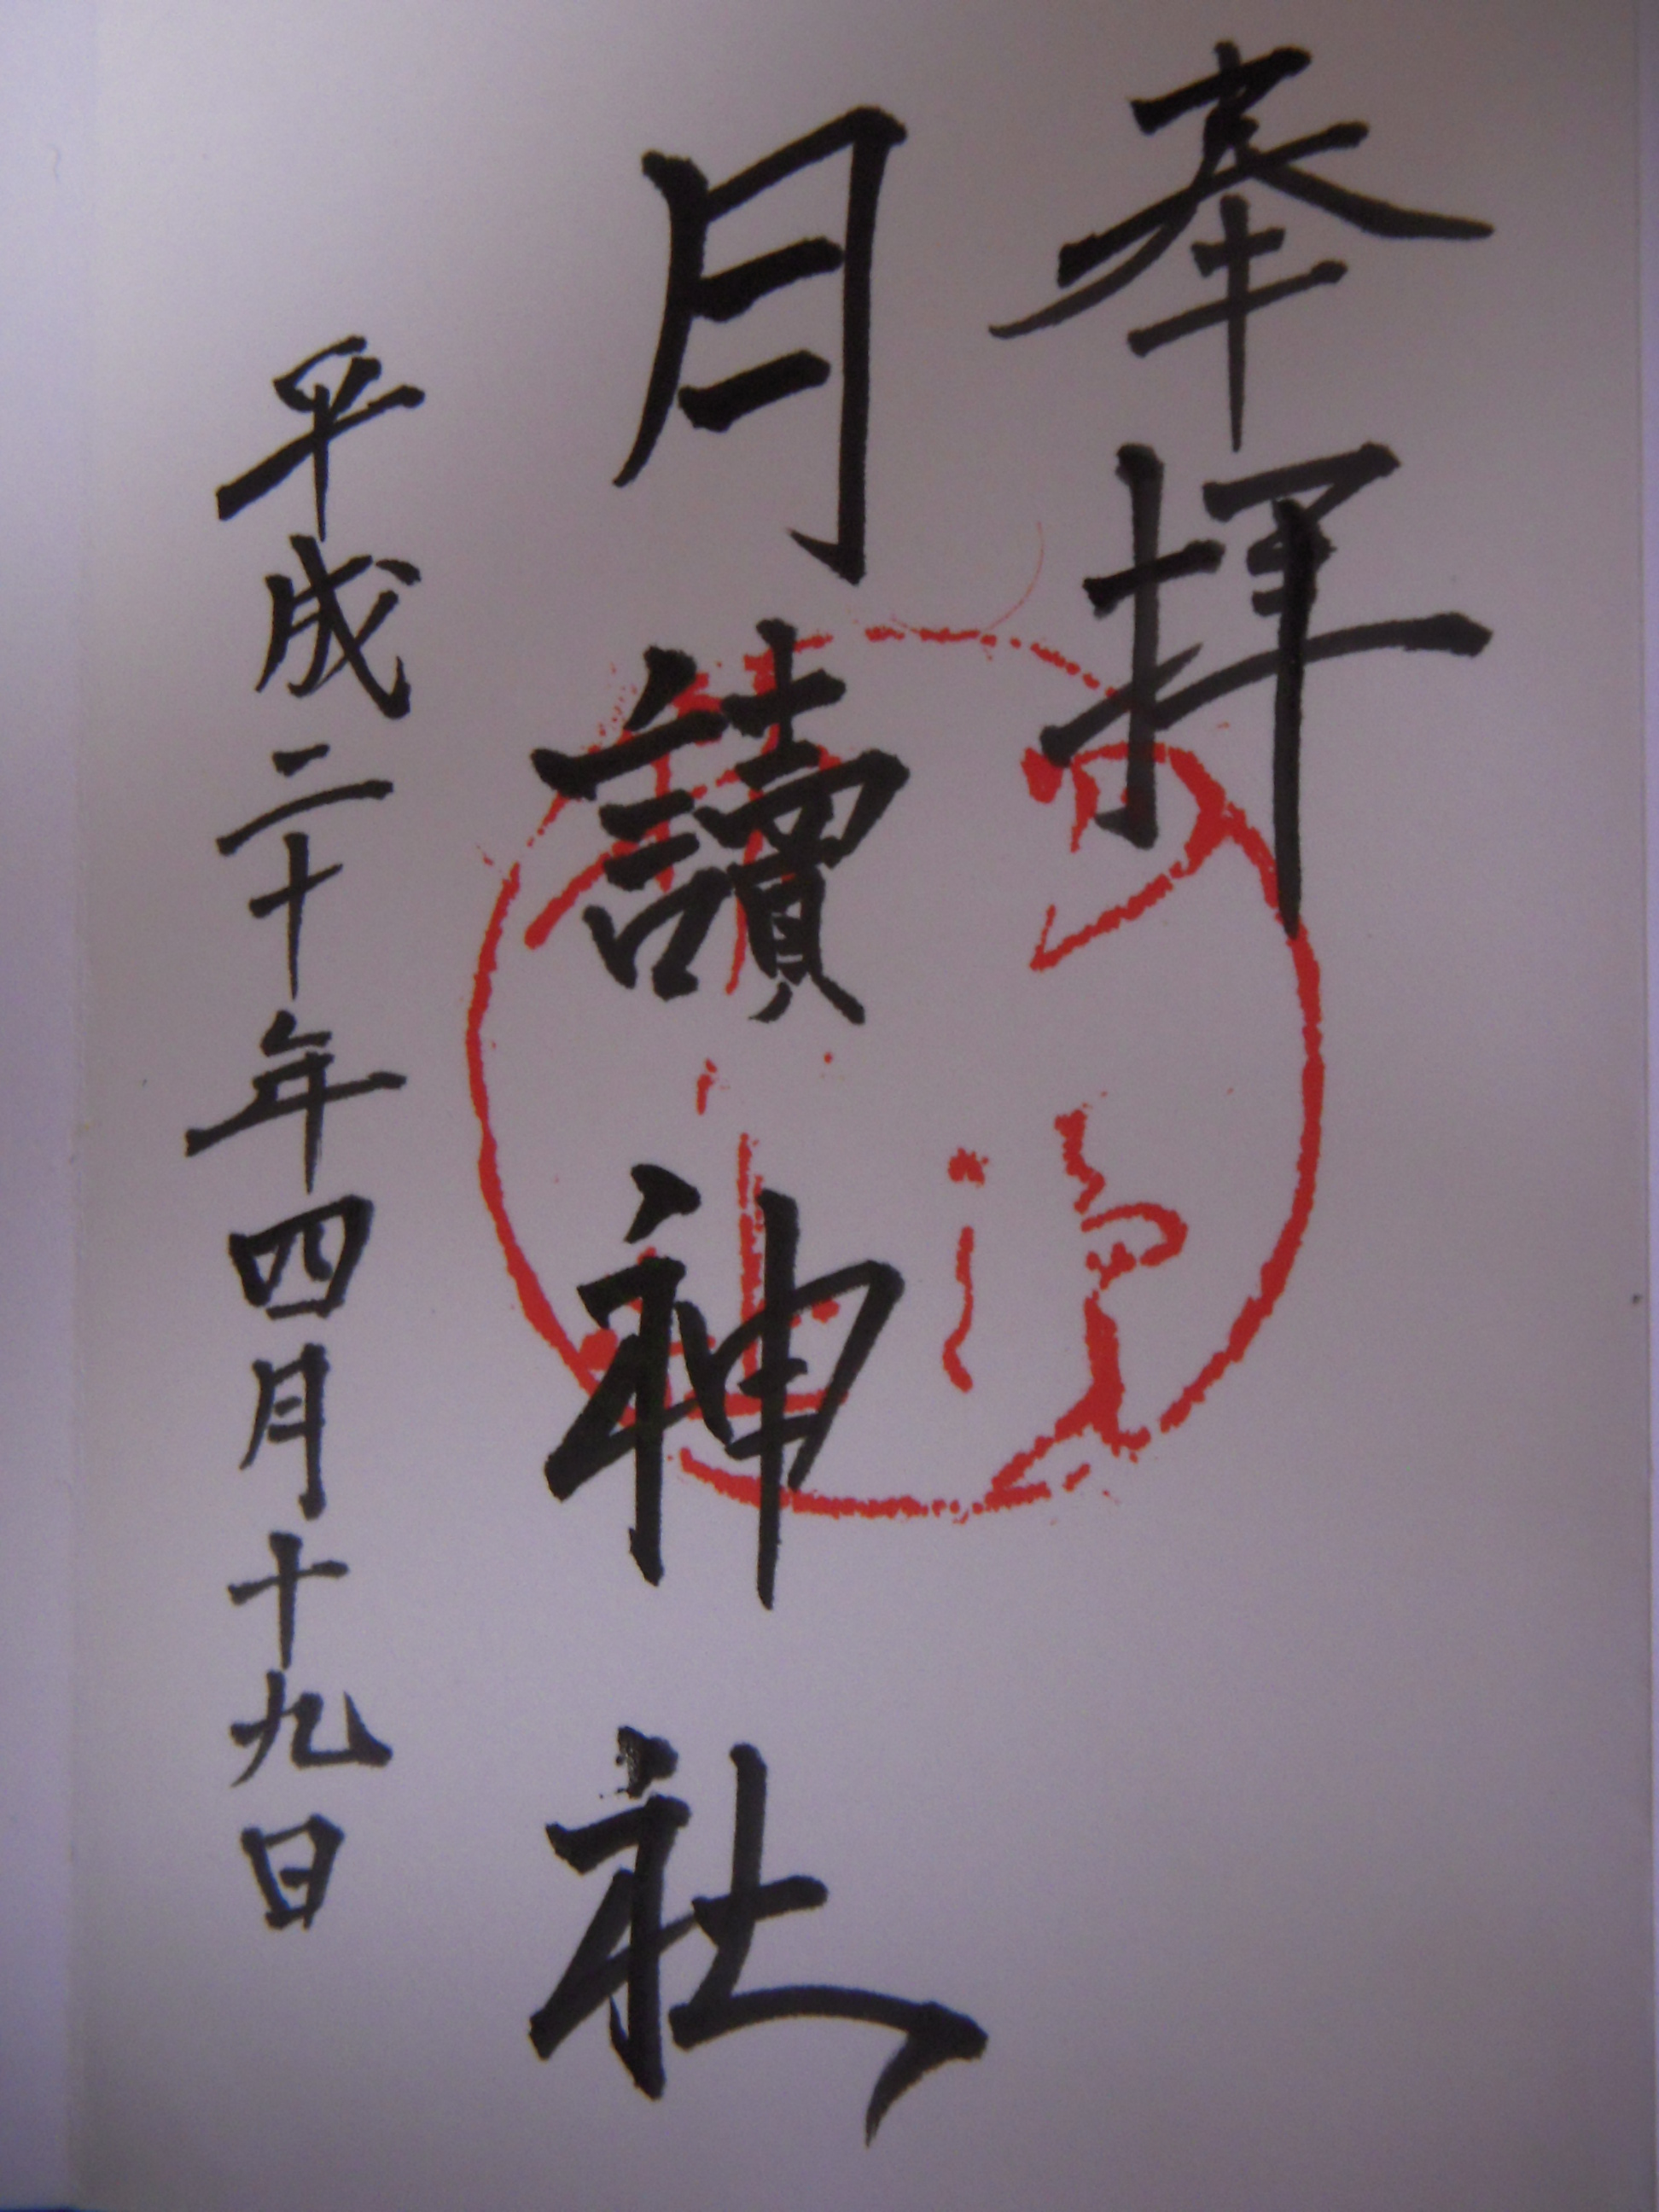 奉拝
月讀神社
平成二十年四月十九日